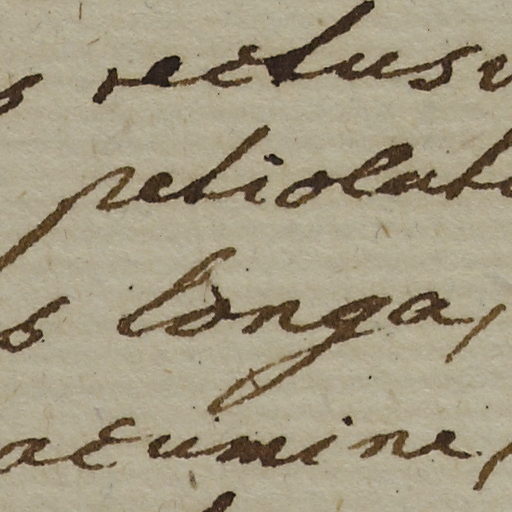 s rectus
petiolat
s longa,
acumine,